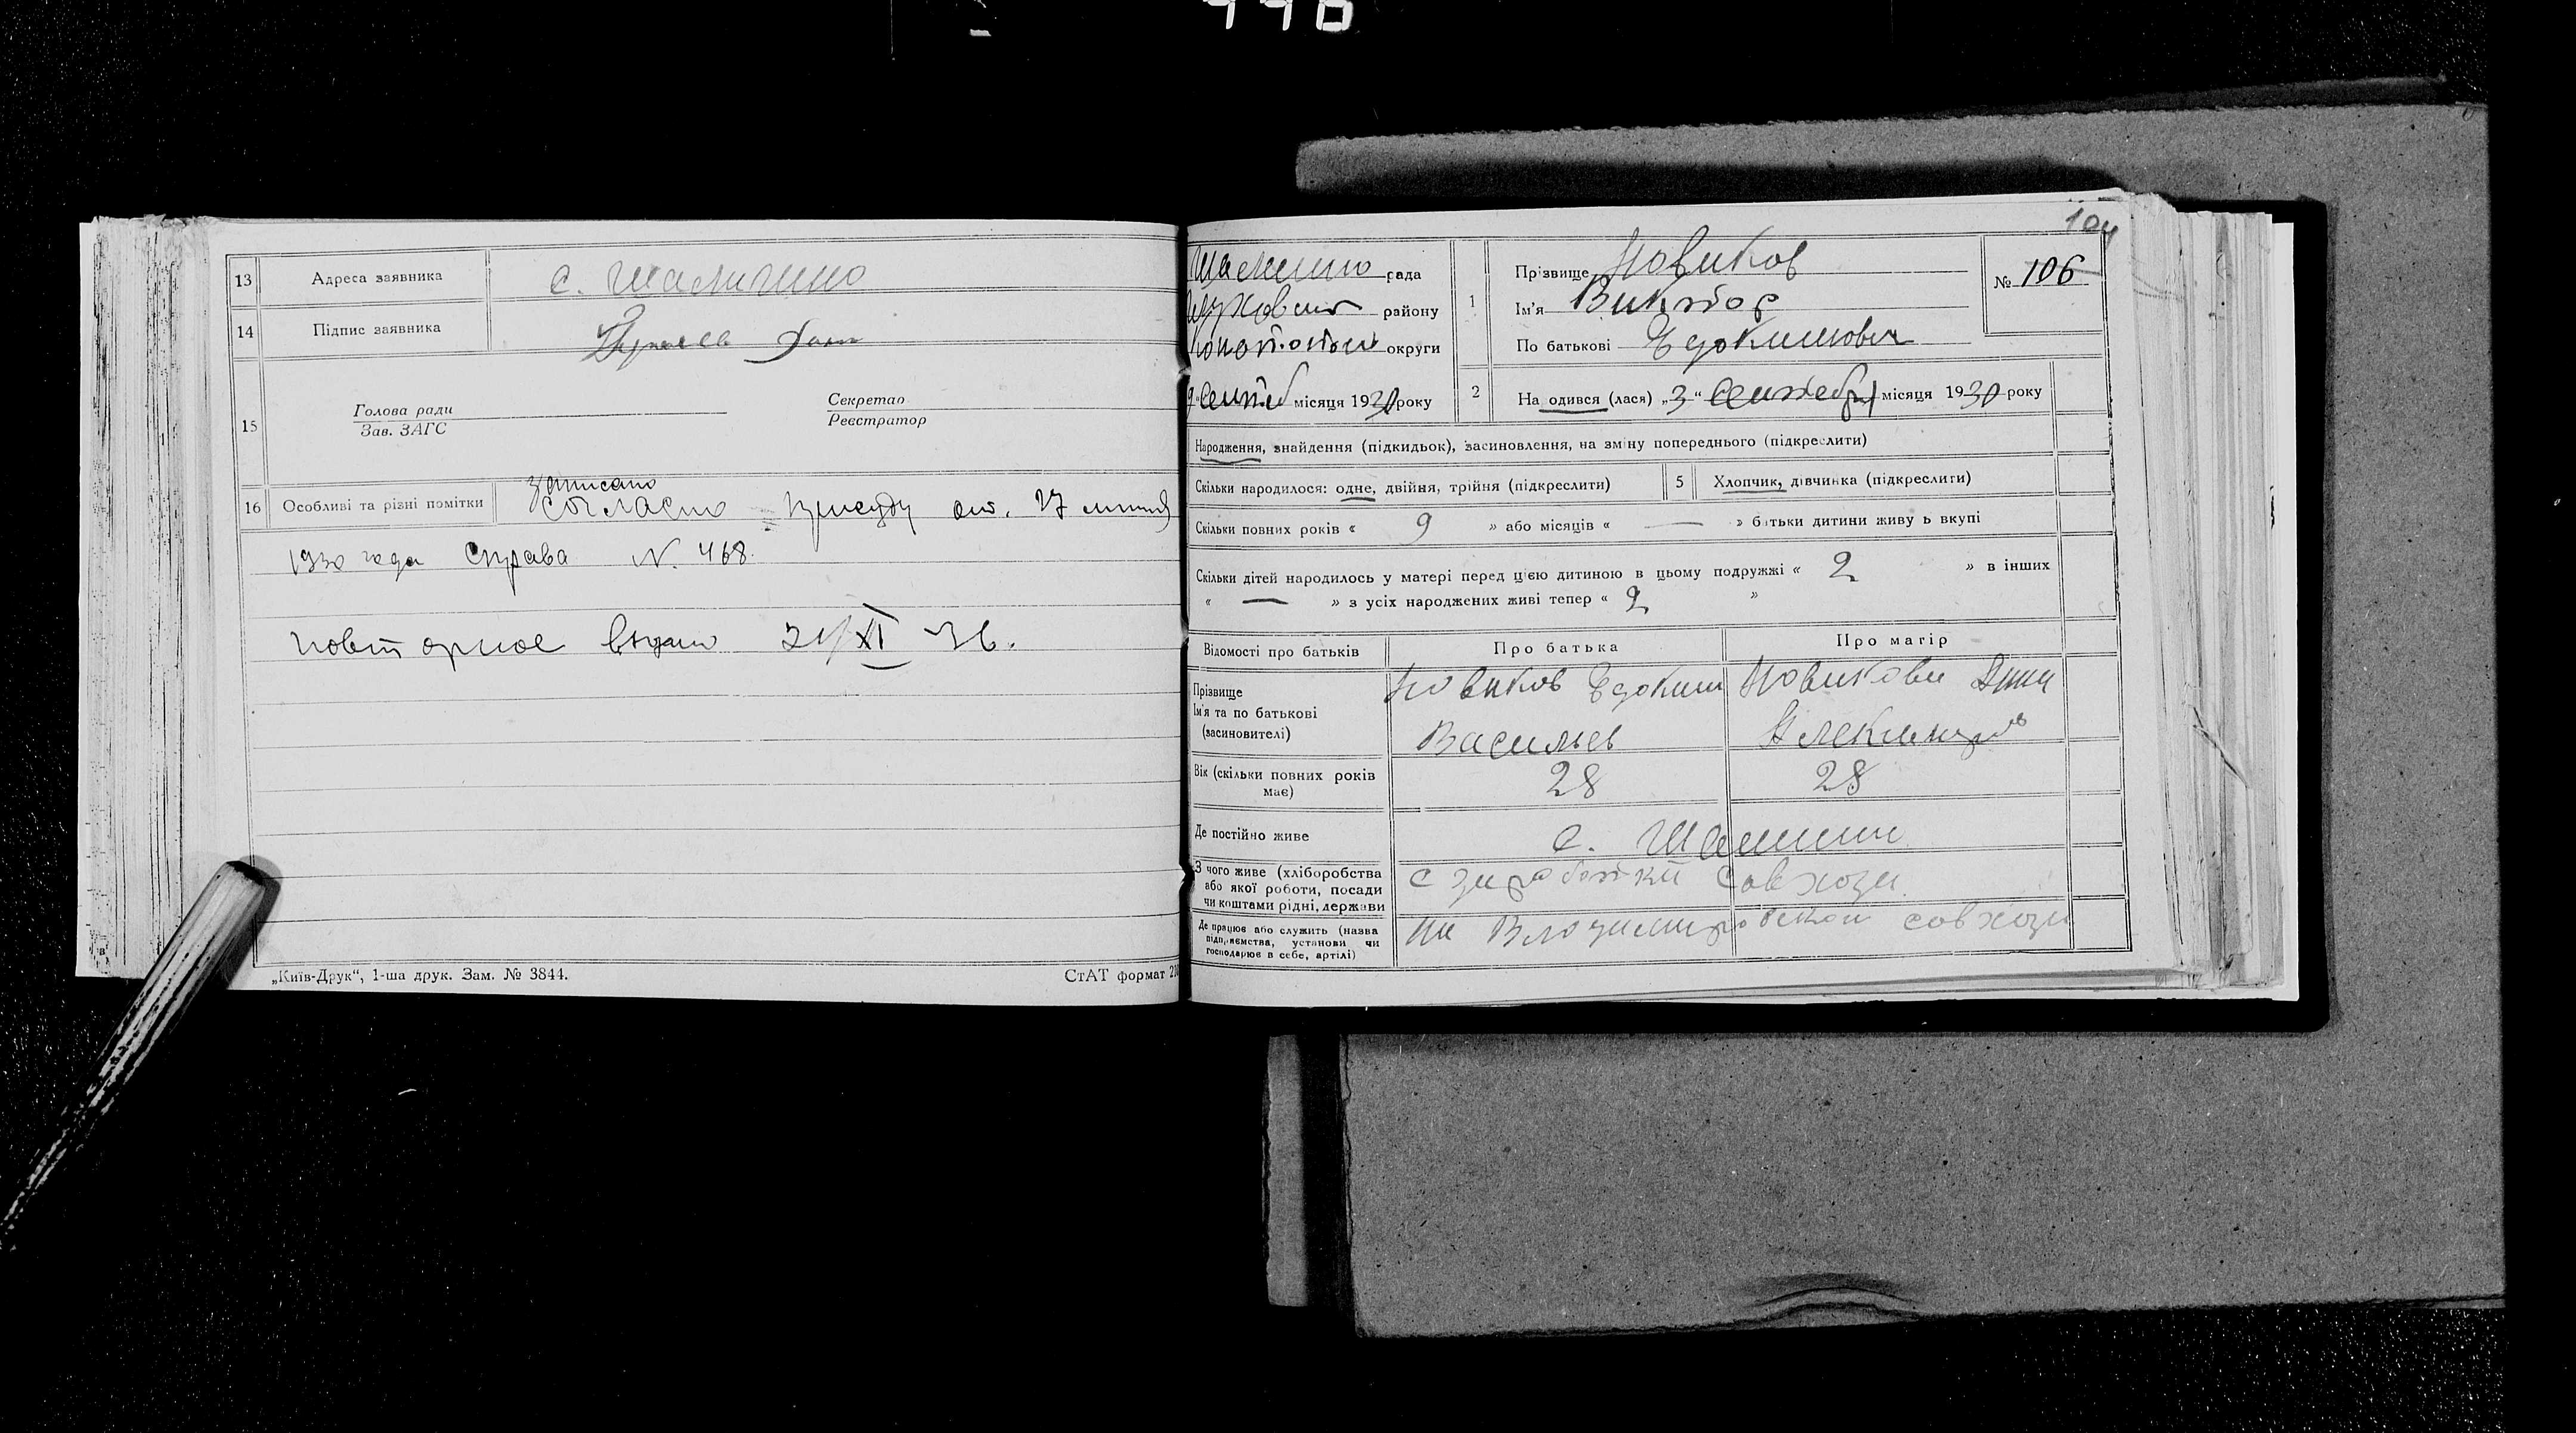 13 Адреса заявника с. Шалигино
14 Підпис заявника
15 Голова ради Секретар
Зав. ЗАГС Реєстратор
записано
16 Особливі та різні помітки согласно присуду от. 17 липня
1930 года Справа N. 468.
повторное выдано 21/XI 36.
„Київ-Друк“, 1-ша друк. Зам. № 3844. СтАТ формат
104
рада
району
округи
9 Сентяб місяця 1930 року
1 Прізвище Новиков
Ім'я Виктор
По батькові Евдокимович
№ 106
2 На одився (лася) „3“ Сентября місяця 1930 року
Народження, знайдення (підкидьок), засиновлення, на зміну попереднього (підкреслити)
Скільки народилося: одне, двійня, трійня (підкреслити) 5 Хлопчик, дівчинка (підкреслити)
Скільки повних років « 9 » або місяців « — » батьки дитини живу ь вкупі
Скільки дітей народилось у матері перед цією дитиною в цьому подружжі « 2 » в інших
« — » з усіх народжених живі тепер « 2 »
Відомості про батьків Про батька Про матір
Прізвище Новиков Евдоким Новикова Анна
Ім'я та по батькові
(засиновителі) Васильев
Вік (скільки повних років має) 28 28
Де постійно живе с.
З чого живе (хліборобства або якої роботи, посади чи коштами рідні, держави с заработки совхоза
Де працює або служить (назва підприємства, установи чи господарює в себе, артілі) на Владимировской совхоза